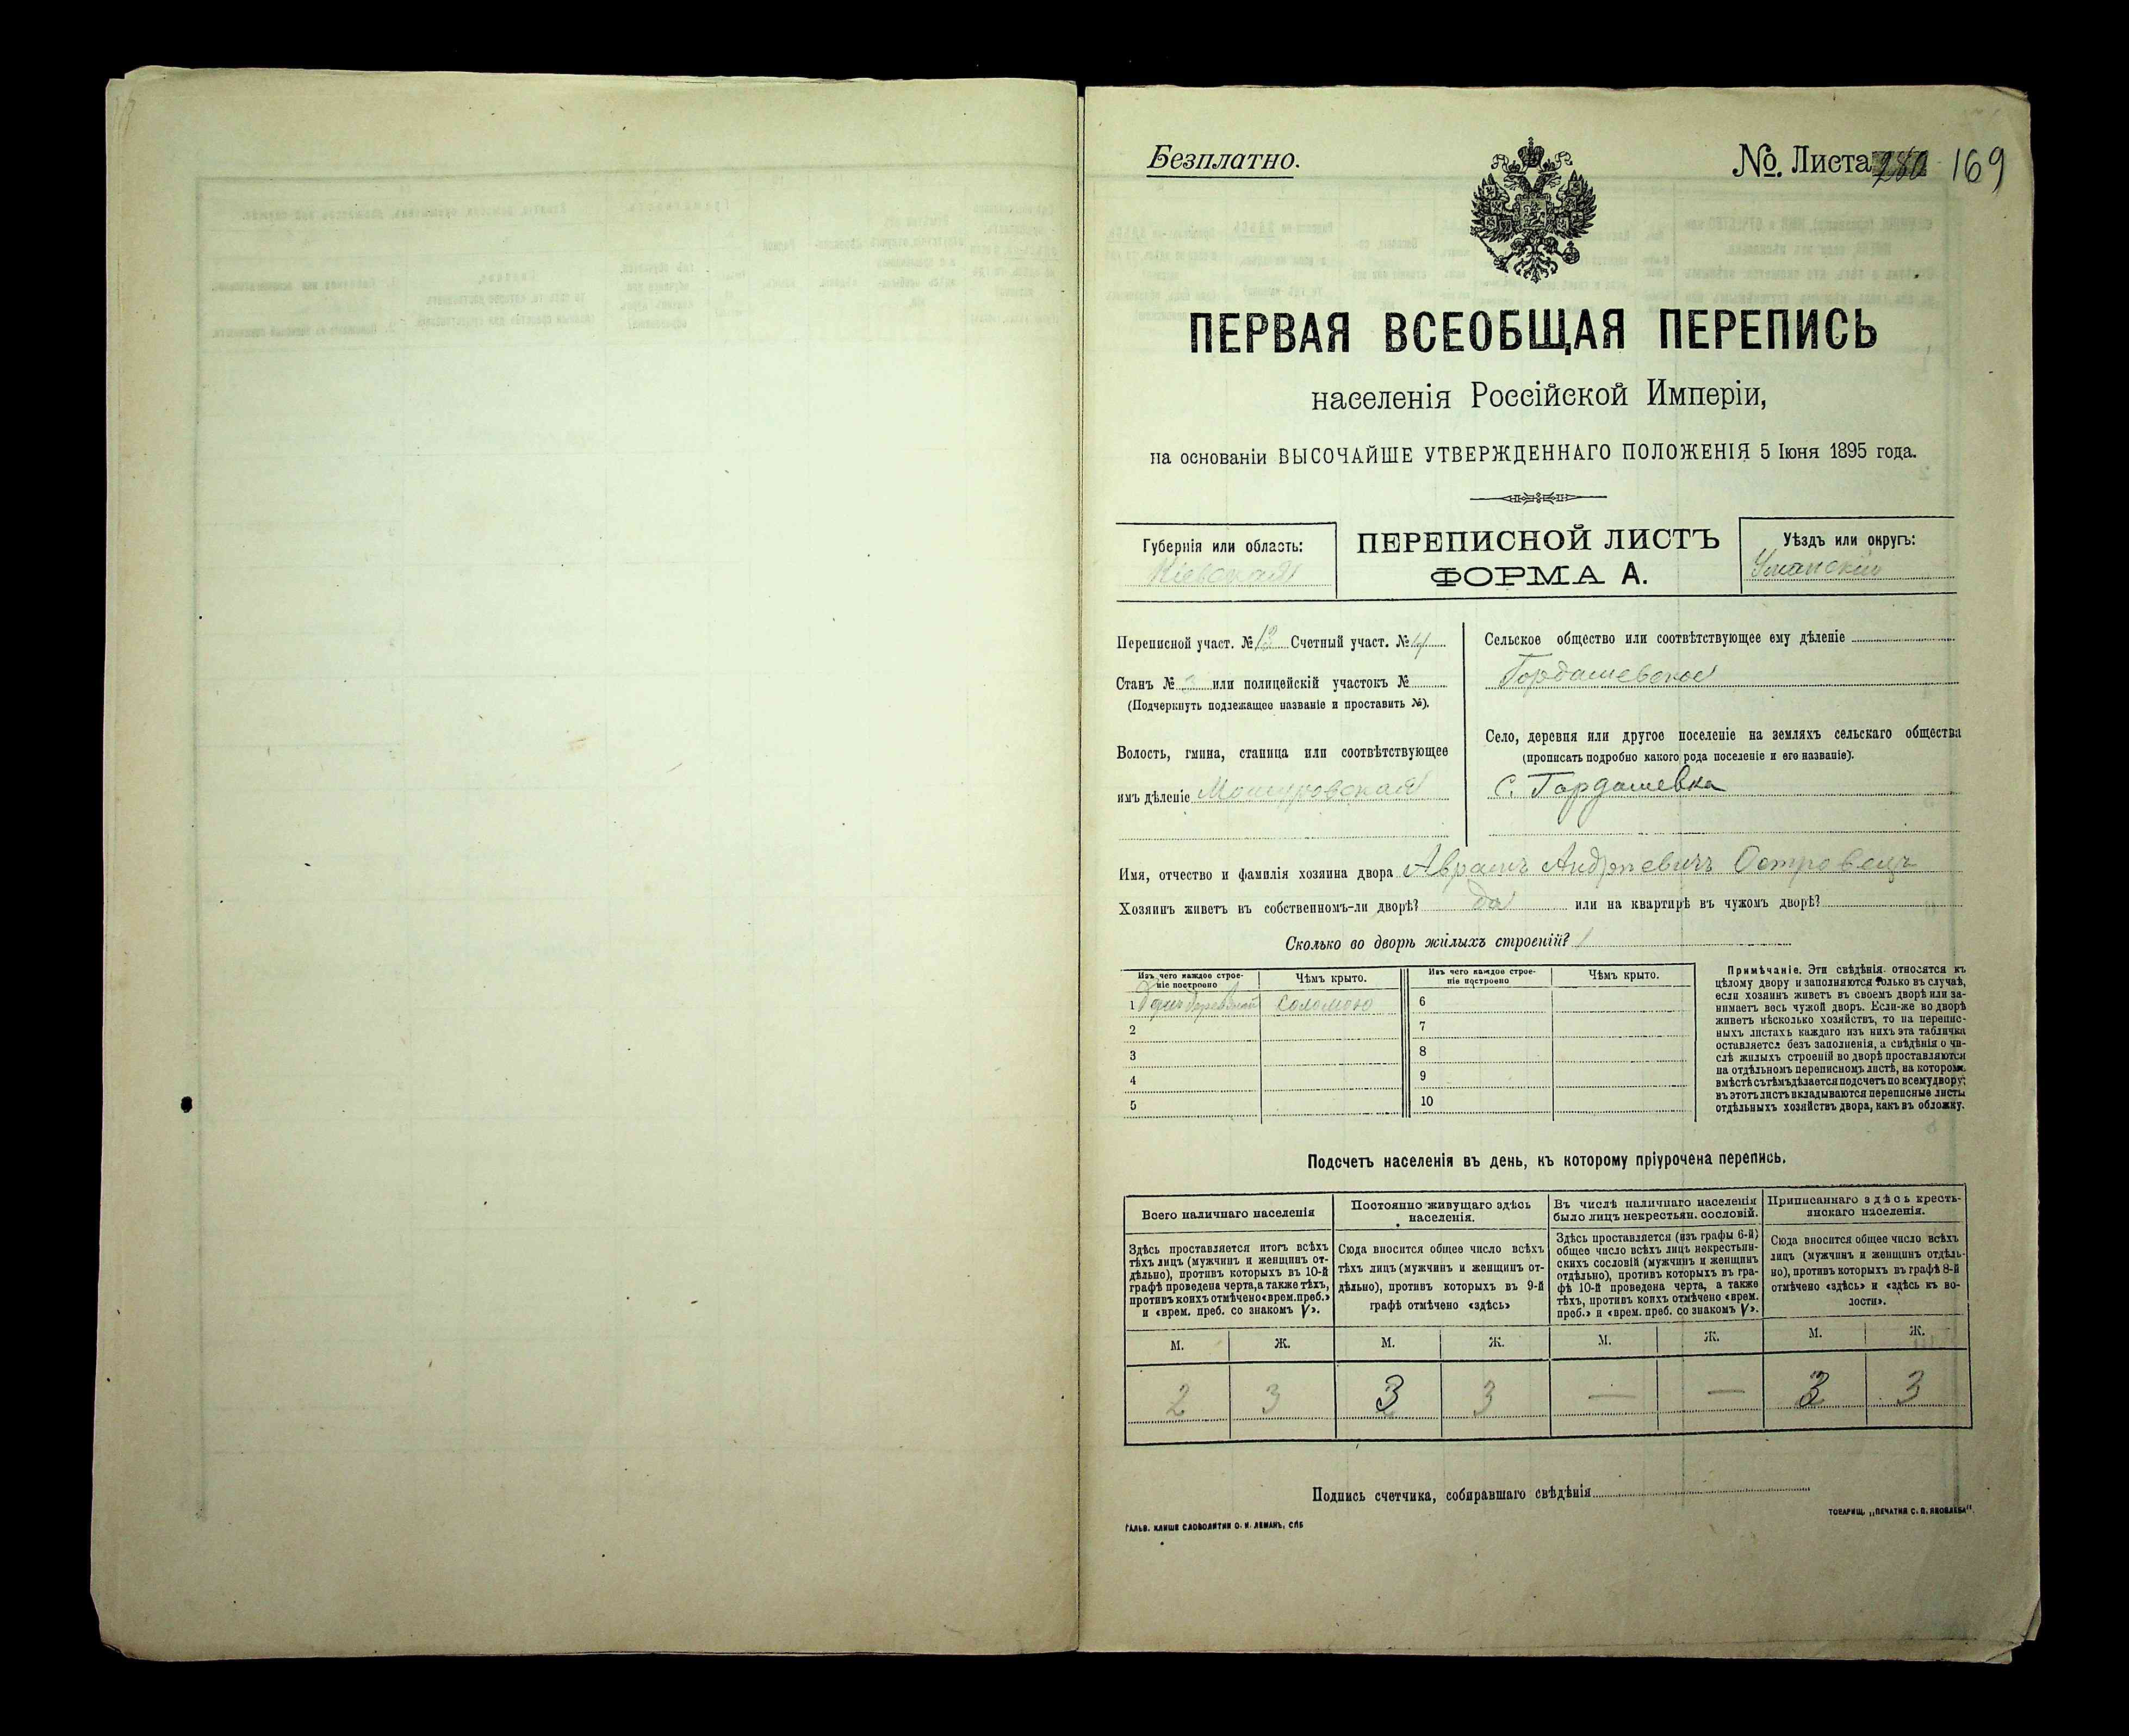 Безплатно.
№. Листа 169
ПЕРВАЯ ВСЕОБЩАЯ ПЕРЕПИСЬ
населенія Россійской Имперіи,
на основаніи ВЫСОЧАЙШЕ УТВЕРЖДЕННАГО ПОЛОЖЕНІЯ 5 Іюня 1895 года.
Губернія или область:
Кіевская
ПЕРЕПИСНОЙ ЛИСТЪ
ФОРМА А.
Уѣздъ или округъ:
Уманскій
Переписной участ. № 13 Счетный участ. № 4
Станъ № 3 или полицейскій участокъ №
(Подчеркнуть подлежащее названіе и проставить №).
Волость, гмина, станица или соотвѣтствующее
имъ дѣленіе Мошуровская
Сельское общество или соотвѣтствующее ему дѣленіе
Гордашевское
Село, деревня или другое поселеніе на земляхъ сельскаго общества
(прописать подробно какого рода поселеніе и его названіе).
С. Гордашевка
Имя, отчество и фамилія хозяина двора Аврамъ Андрѣевичъ Островецъ
Хозяинъ живетъ въ собственномъ-ли дворѣ? да или на квартирѣ въ чужомъ дворѣ?
Сколько во дворѣ жилыхъ строеній? 1
Изъ чего каждое строе-
ніе построено
Чѣмъ крыто.
Изъ чего каждое строе-
ніе построено
Чѣмъ крыто.
1 соломою
2
3
4
5
6
7
8
9
10
Примѣчаніе. Эти свѣдѣнія относятся къ
цѣлому двору и заполняются только въ случаѣ,
если хозяинъ живетъ въ своемъ дворѣ или за-
нимаетъ весь чужой дворъ. Если-же во дворѣ
живетъ нѣсколько хозяйствъ, то на перепис-
ныхъ листахъ каждаго изъ нихъ эта табличка
оставляется безъ заполненія, а свѣдѣнія о чи-
слѣ жилыхъ строеній во дворѣ проставляются
на отдѣльномъ переписномъ листѣ, на которомъ
вмѣстѣ съ тѣмъ дѣлается подсчетъ по всему двору;
въ этотъ листъ вкладываются переписные листы
отдѣльныхъ хозяйствъ двора, какъ въ обложку.
Подсчетъ населенія въ день, къ которому пріурочена перепись.
Всего наличнаго населенія
Здѣсь проставляется итогъ всѣхъ
тѣхъ лицъ (мужчинъ и женщинъ от-
дѣльно), противъ которыхъ въ 10-й
графѣ проведена черта, а также тѣхъ,
противъ коихъ отмѣчено «врем. преб.»
и «врем. преб. со знакомъ V».
Постоянно живущаго здѣсь
населенія.
Сюда вносится общее число всѣхъ
тѣхъ лицъ (мужчинъ и женщинъ от-
дѣльно), противъ которыхъ въ 9-й
графѣ отмѣчено «здѣсь»
Въ числѣ наличнаго населенія
было лицъ некрестьян. сословій.
Здѣсь проставляется (изъ графы 6-й)
общее число всѣхъ лицъ некрестьян-
скихъ сословій (мужчинъ и женщинъ
отдѣльно), противъ которыхъ въ гра-
фѣ 10-й проведена черта, а также
тѣхъ, противъ коихъ отмѣчено «врем.
преб.» и «врем. преб. со знакомъ V».
Приписаннаго здѣсь кресть-
янскаго населенія.
Сюда вносится общее число всѣхъ
лицъ (мужчинъ и женщинъ отдѣль-
но), противъ которыхъ въ графѣ 8-й
отмѣчено «здѣсь» и «здѣсь къ во-
лости».
М. Ж. М. Ж. М. Ж. М. Ж.
2 3 3 3 — — 3 3
Подпись счетчика, собиравшаго свѣдѣнія
ГАЛЬВ. КЛИШЕ СЛОВОЛИТНИ О. И. ЛЕМАНЪ, СПБ
ТОВАРИЩ. „ПЕЧАТНЯ С. П. ЯКОВЛЕВА“.